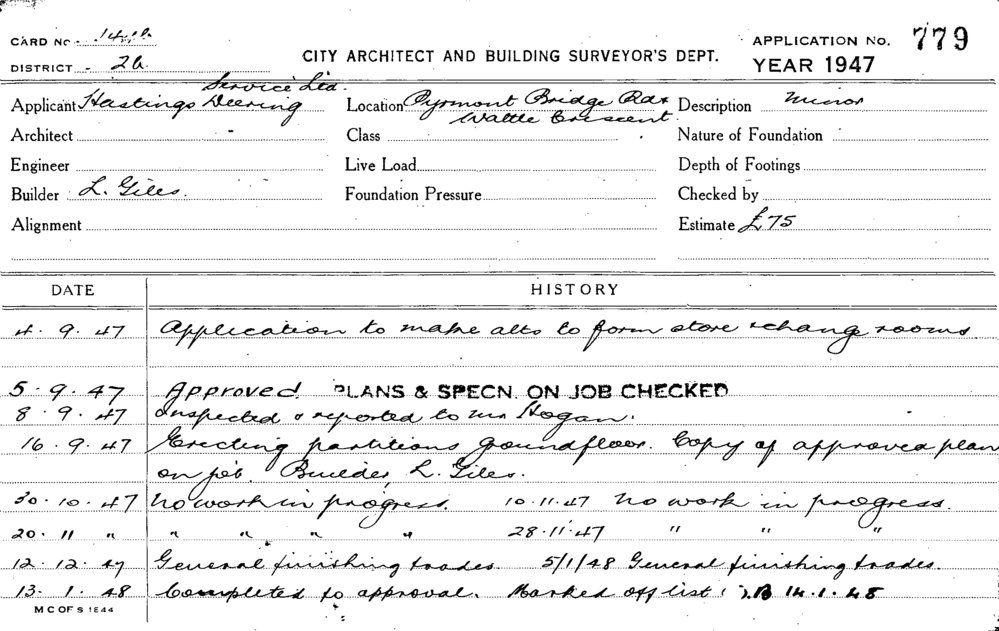 CARD No.
DISTRICT - 2a.
CITY ARCHITECT AND BUILDING SURVEYOR'S DEPT.
APPLICATION No. 779
YEAR 1947
Service Ltd.
Applicant Hastings Deering
Location Pyrmont Bridge Rd &
Wattle Crescent.
Description Minor
Architect
Class
Nature of Foundation
Engineer
Live Load
Depth of Footings
Builder L. Giles.
Foundation Pressure
Checked by
Alignment
Estimate £75
DATE HISTORY
4. 9. 47 Application to make alts to form store & change rooms
5. 9. 47 Approved PLANS & SPECN. ON JOB CHECKED
8. 9. 47 Inspected & reported to Mr Hogan.
16. 9. 47 Erecting partitions groundfloor. Copy of approved plan
on job. Builder, L. Giles.
30. 10. 47 No work in progress. 10.11.47 No work in progress.
20. 11 " " " " " 28.11.47 " " "
12. 12. 47 General finishing trades. 5/1/48 General finishing trades.
13. 1. 48 Completed to approval. Marked off list 14.1.48
M C OF S 1844